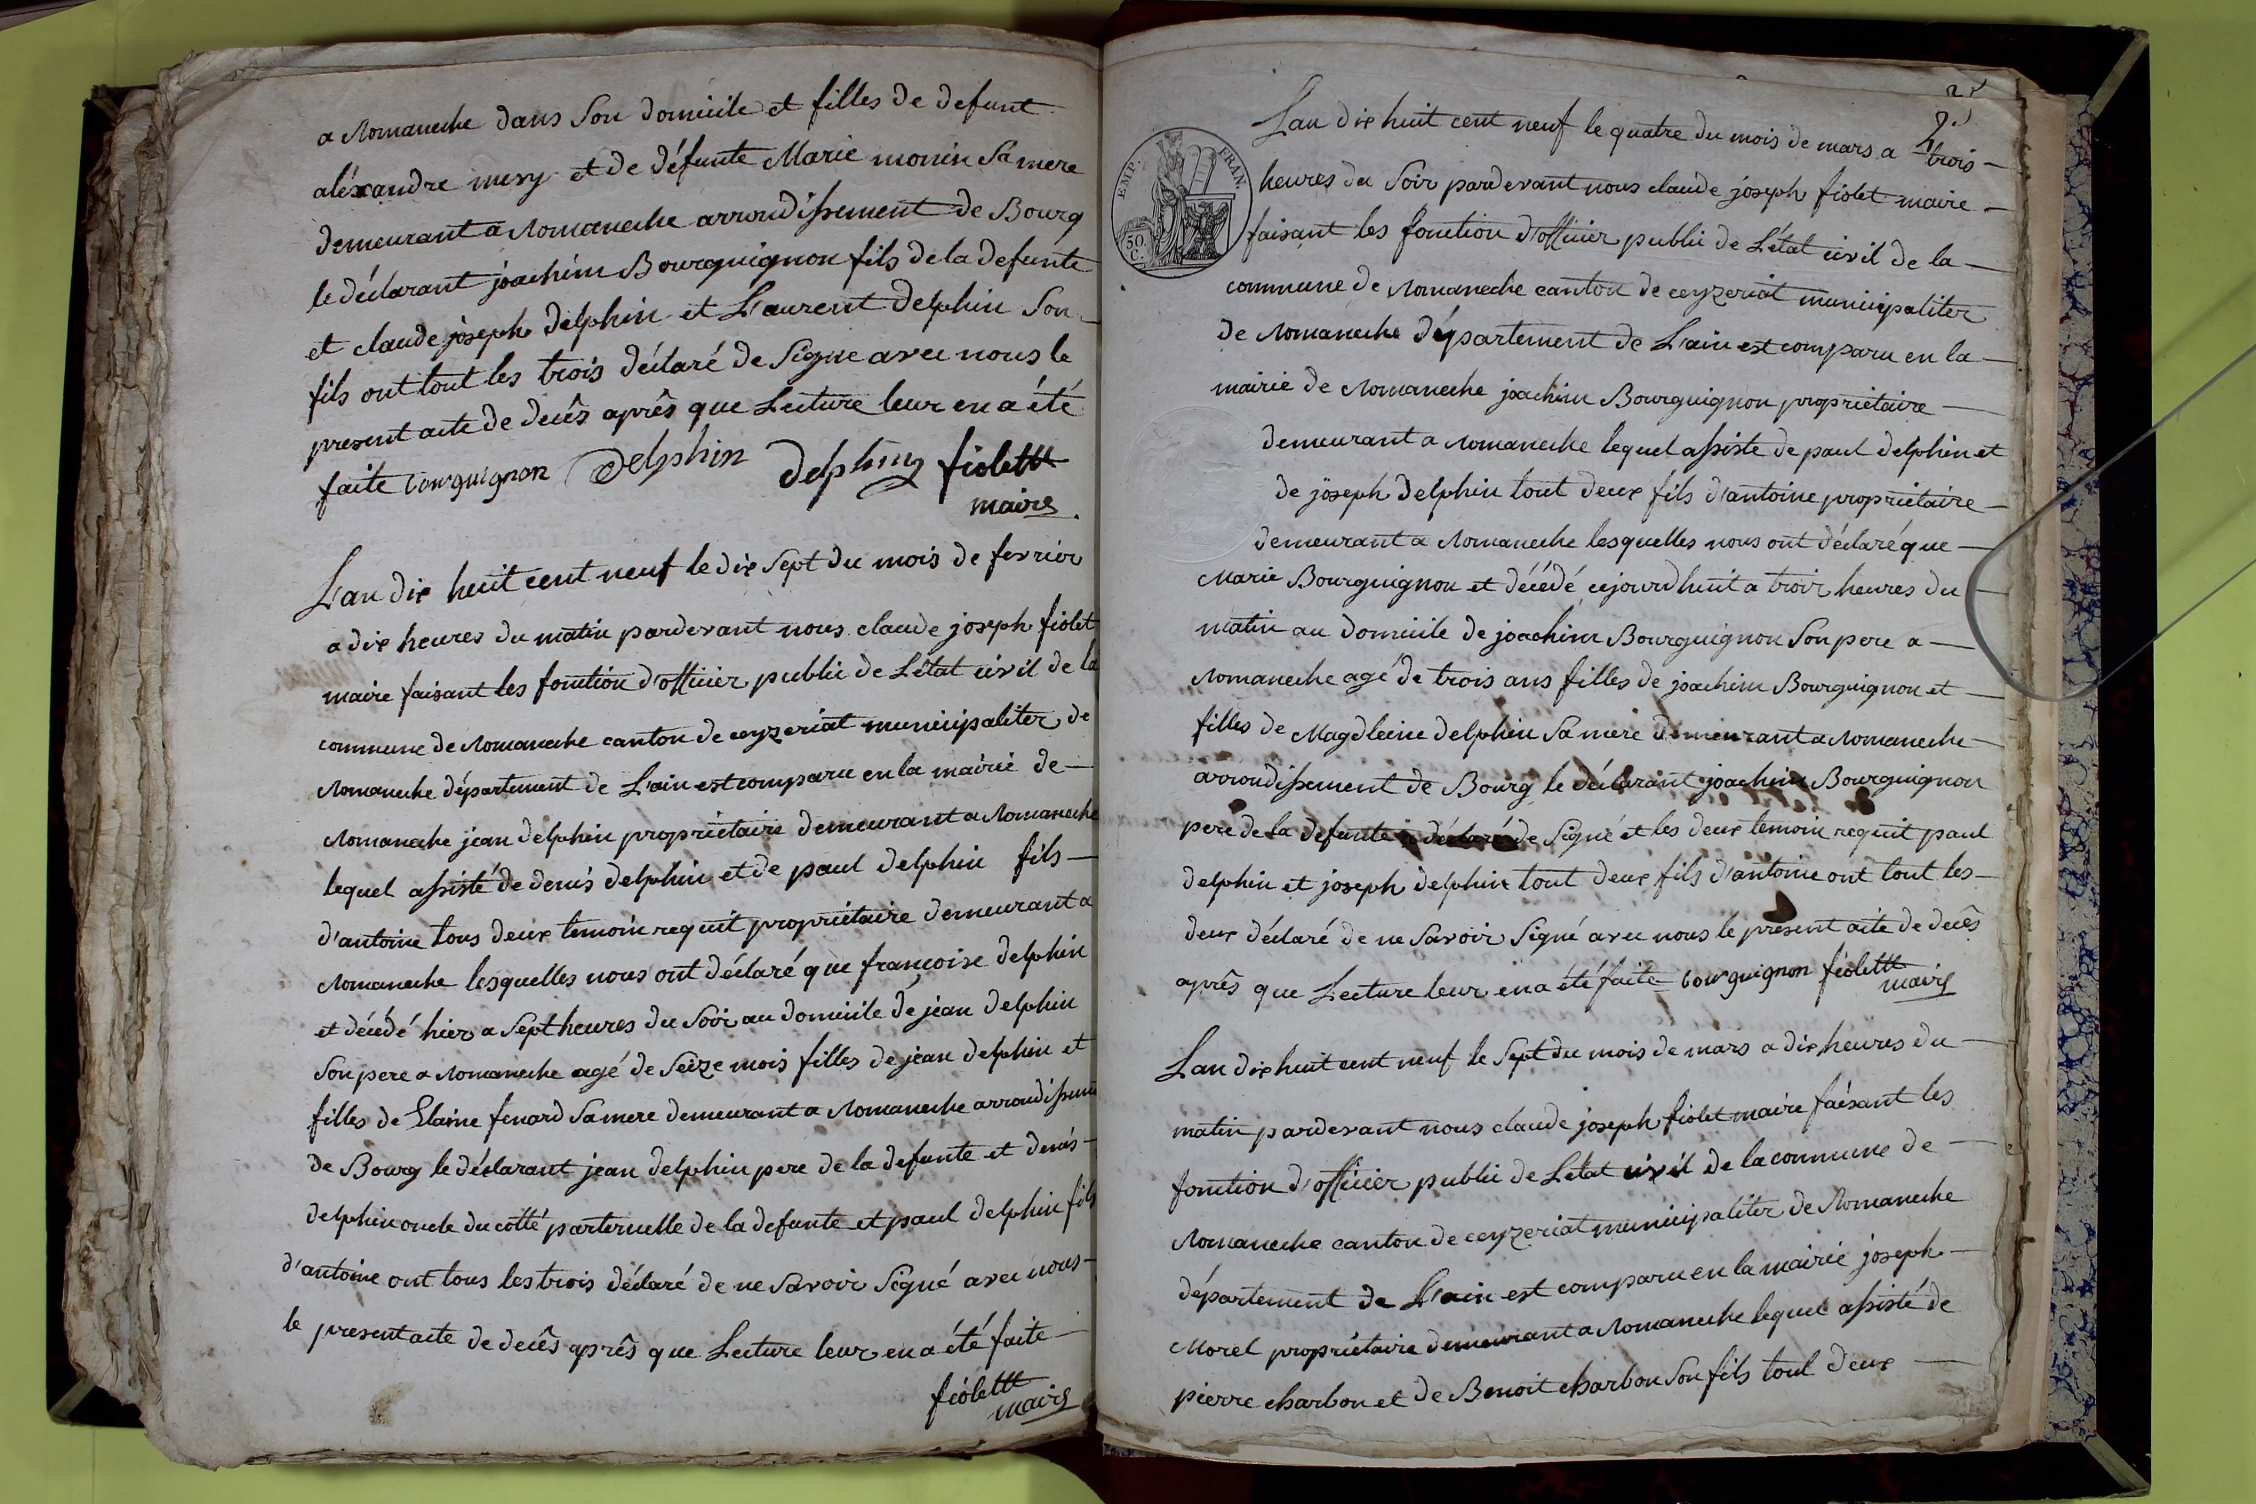 a Romaneche dans Son domicile et filles de defunt
aléxandre mery et de défunte Marie monin Sa mere
demeurant a Romaneche arrondissement de Bourg
le déclarant joachim Bourguignon fils de la defunte
et claude joseph delphin et Laurent delphin Son
fils ont tout les trois déclaré de Signe avec nous le
present acte de decês aprês que Lecture leur en a été
faite bourguignon Delphin delphin fiolet
maire
L'an dix huit cent neuf le dix Sept du mois de fevrier
a dix heures du matin pardevant nous claude joseph fiolet
maire faisant les fonction d'officier public de L'état civil de la
commune de Romaneche canton de ceyzeriat municipaliter de
Romaneche département de L'ain est comparu en la mairie de
Romaneche jean delphin propriétaire demeurant a Romaneche
lequel assisté de denis delphin et de paul delphin fils
d'antoine tous deux temoin requit propriétaire demeurant a
Romaneche lesquelles nous ont déclaré que françoise delphin
et décédé hier a Sept heures du Soir au domicile de jean delphin
Son pere a Romaneche agé de Seize mois filles de jean delphin et
filles de Elaine fenard Sa mere demeurant a Romaneche arrondissement
de Bourg le déclarant jean delphin pere de la defunte et denis
delphin oncle du cotté parternelle de la defunte et paul delphin fils
d'antoine ont tous les trois déclaré de ne Savoir Signé avec nous
le present acte de decês aprês que Lecture leur en a été faite
fiolet
maire
2
EMP. FRAN.
50 C.
L'an dix huit cent neuf le quatre du mois de mars a trois
heures du Soir pardevant nous claude joseph fiolet maire
faisant les fonction d'officier public de L'état civil de la
commune de Romaneche canton de ceyzeriat municipaliter
de Romaneche département de L'ain est comparu en la
mairie de Romaneche joachim Bourguignon propriétaire
demeurant a Romaneche lequel assiste de paul delphin et
de joseph delphin tout deux fils d'antoine propriétaire
demeurant a Romaneche lesquelles nous ont déclaré que
Marie Bourguignon et décédé cejourdhuit a trois heures du
matin au domicile de joachim Bourguignon Son pere a
Romaneche agé de trois ans filles de joachim Bourguignon et
filles de Magdleine delphin Sa mere demeurant a Romaneche
arrondissement de Bourg le déclarant joachim Bourguignon
pere de la defunte a déclaré de Signé et les deux temoin requit paul
delphin et joseph delphin tout deux fils d'antoine ont tout les
deux déclaré de ne Savoir Signé avec nous le present acte de decês
aprês que Lecture leur en a été faite bourguignon fiolet
maire
L'an dix huit cent neuf le Sept du mois de mars a dix heures du
matin pardevant nous claude joseph fiolet maire faisant les
fonction d'officier public de L'etat civil de la commune de
Romaneche canton de ceyzeriat municipaliter de Romaneche
département de L'ain est comparu en la mairie joseph
Morel propriétaire demeurant a Romaneche lequel assisté de
pierre charbon et de Benoit charbon Son fils tout deux